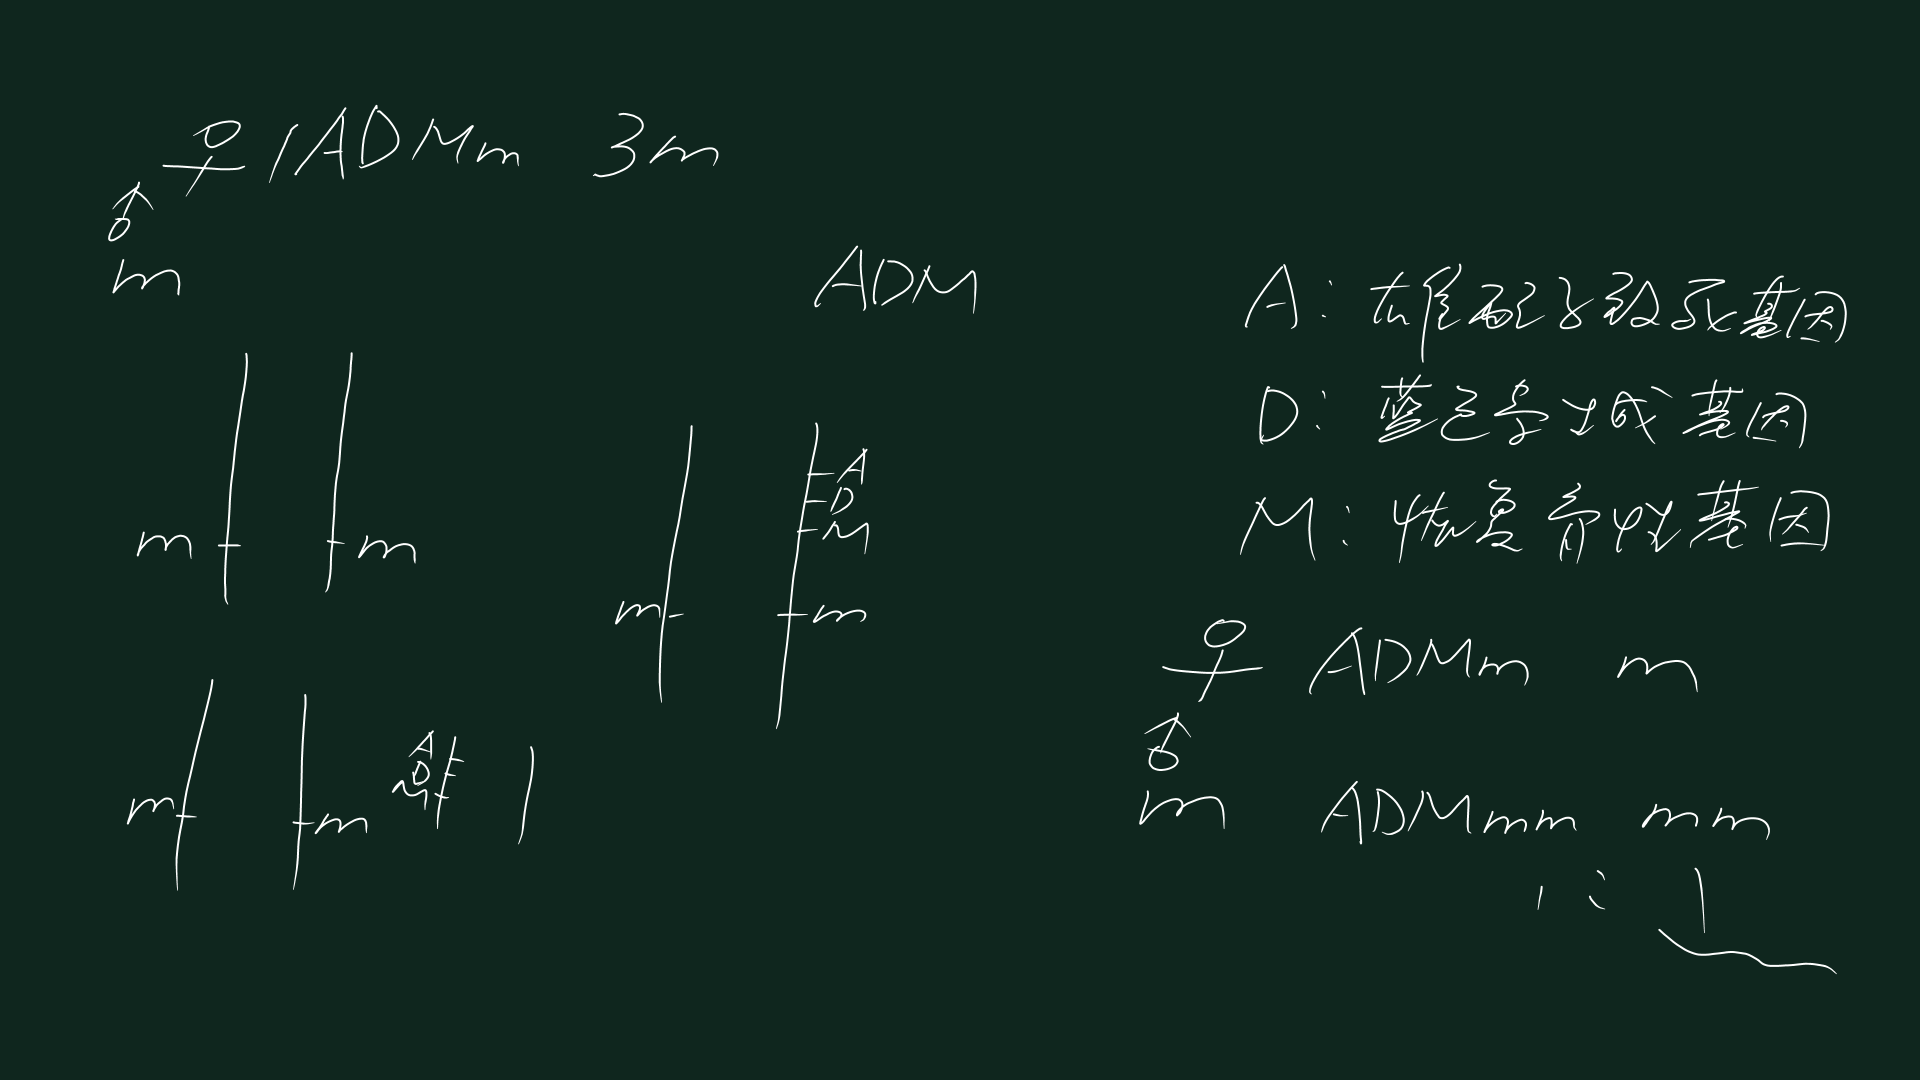 ♀ 1ADMm 3m
♂
m
ADM
m m
A
D
M
m m
m m
A
D
M
A: 雄配子致死基因
D: 蓝色素生成基因
M: 恢复育性基因
♀ ADMm m
♂
m ADMmm mm
1 : 1